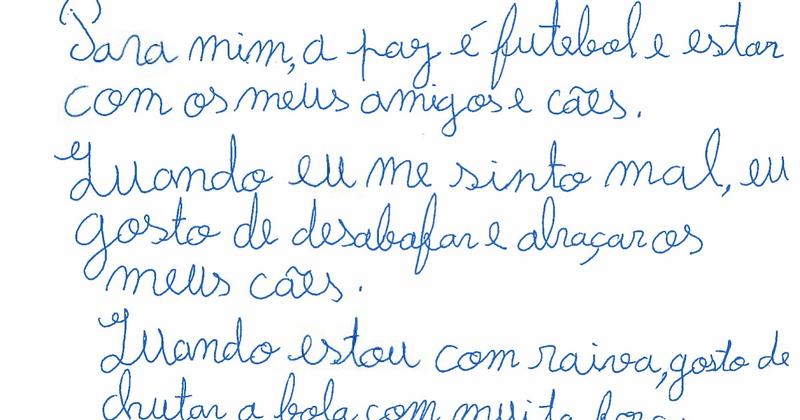 Para mim, a paz é futebol e estar
com os meus amigos e cães.
Quando eu me sinto mal, eu
gosto de desabafar e abraçar os
meus cães.
Quando estou com raiva, gosto de
chutar a bola com muita